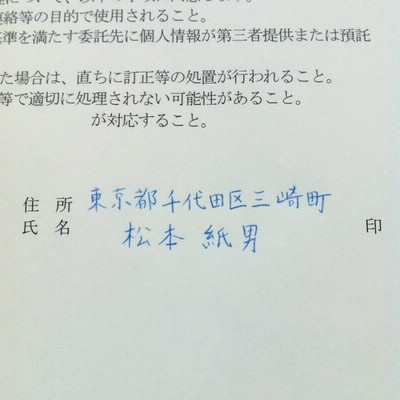 絡等の目的で使用されること。
基準を満たす委託先に個人情報が第三者提供または預託
た場合は、直ちに訂正等の処置が行われること。
等で適切に処理されない可能性があること。
が対応すること。
住 所 東京都千代田区三崎町
氏 名 松本 紙男 印